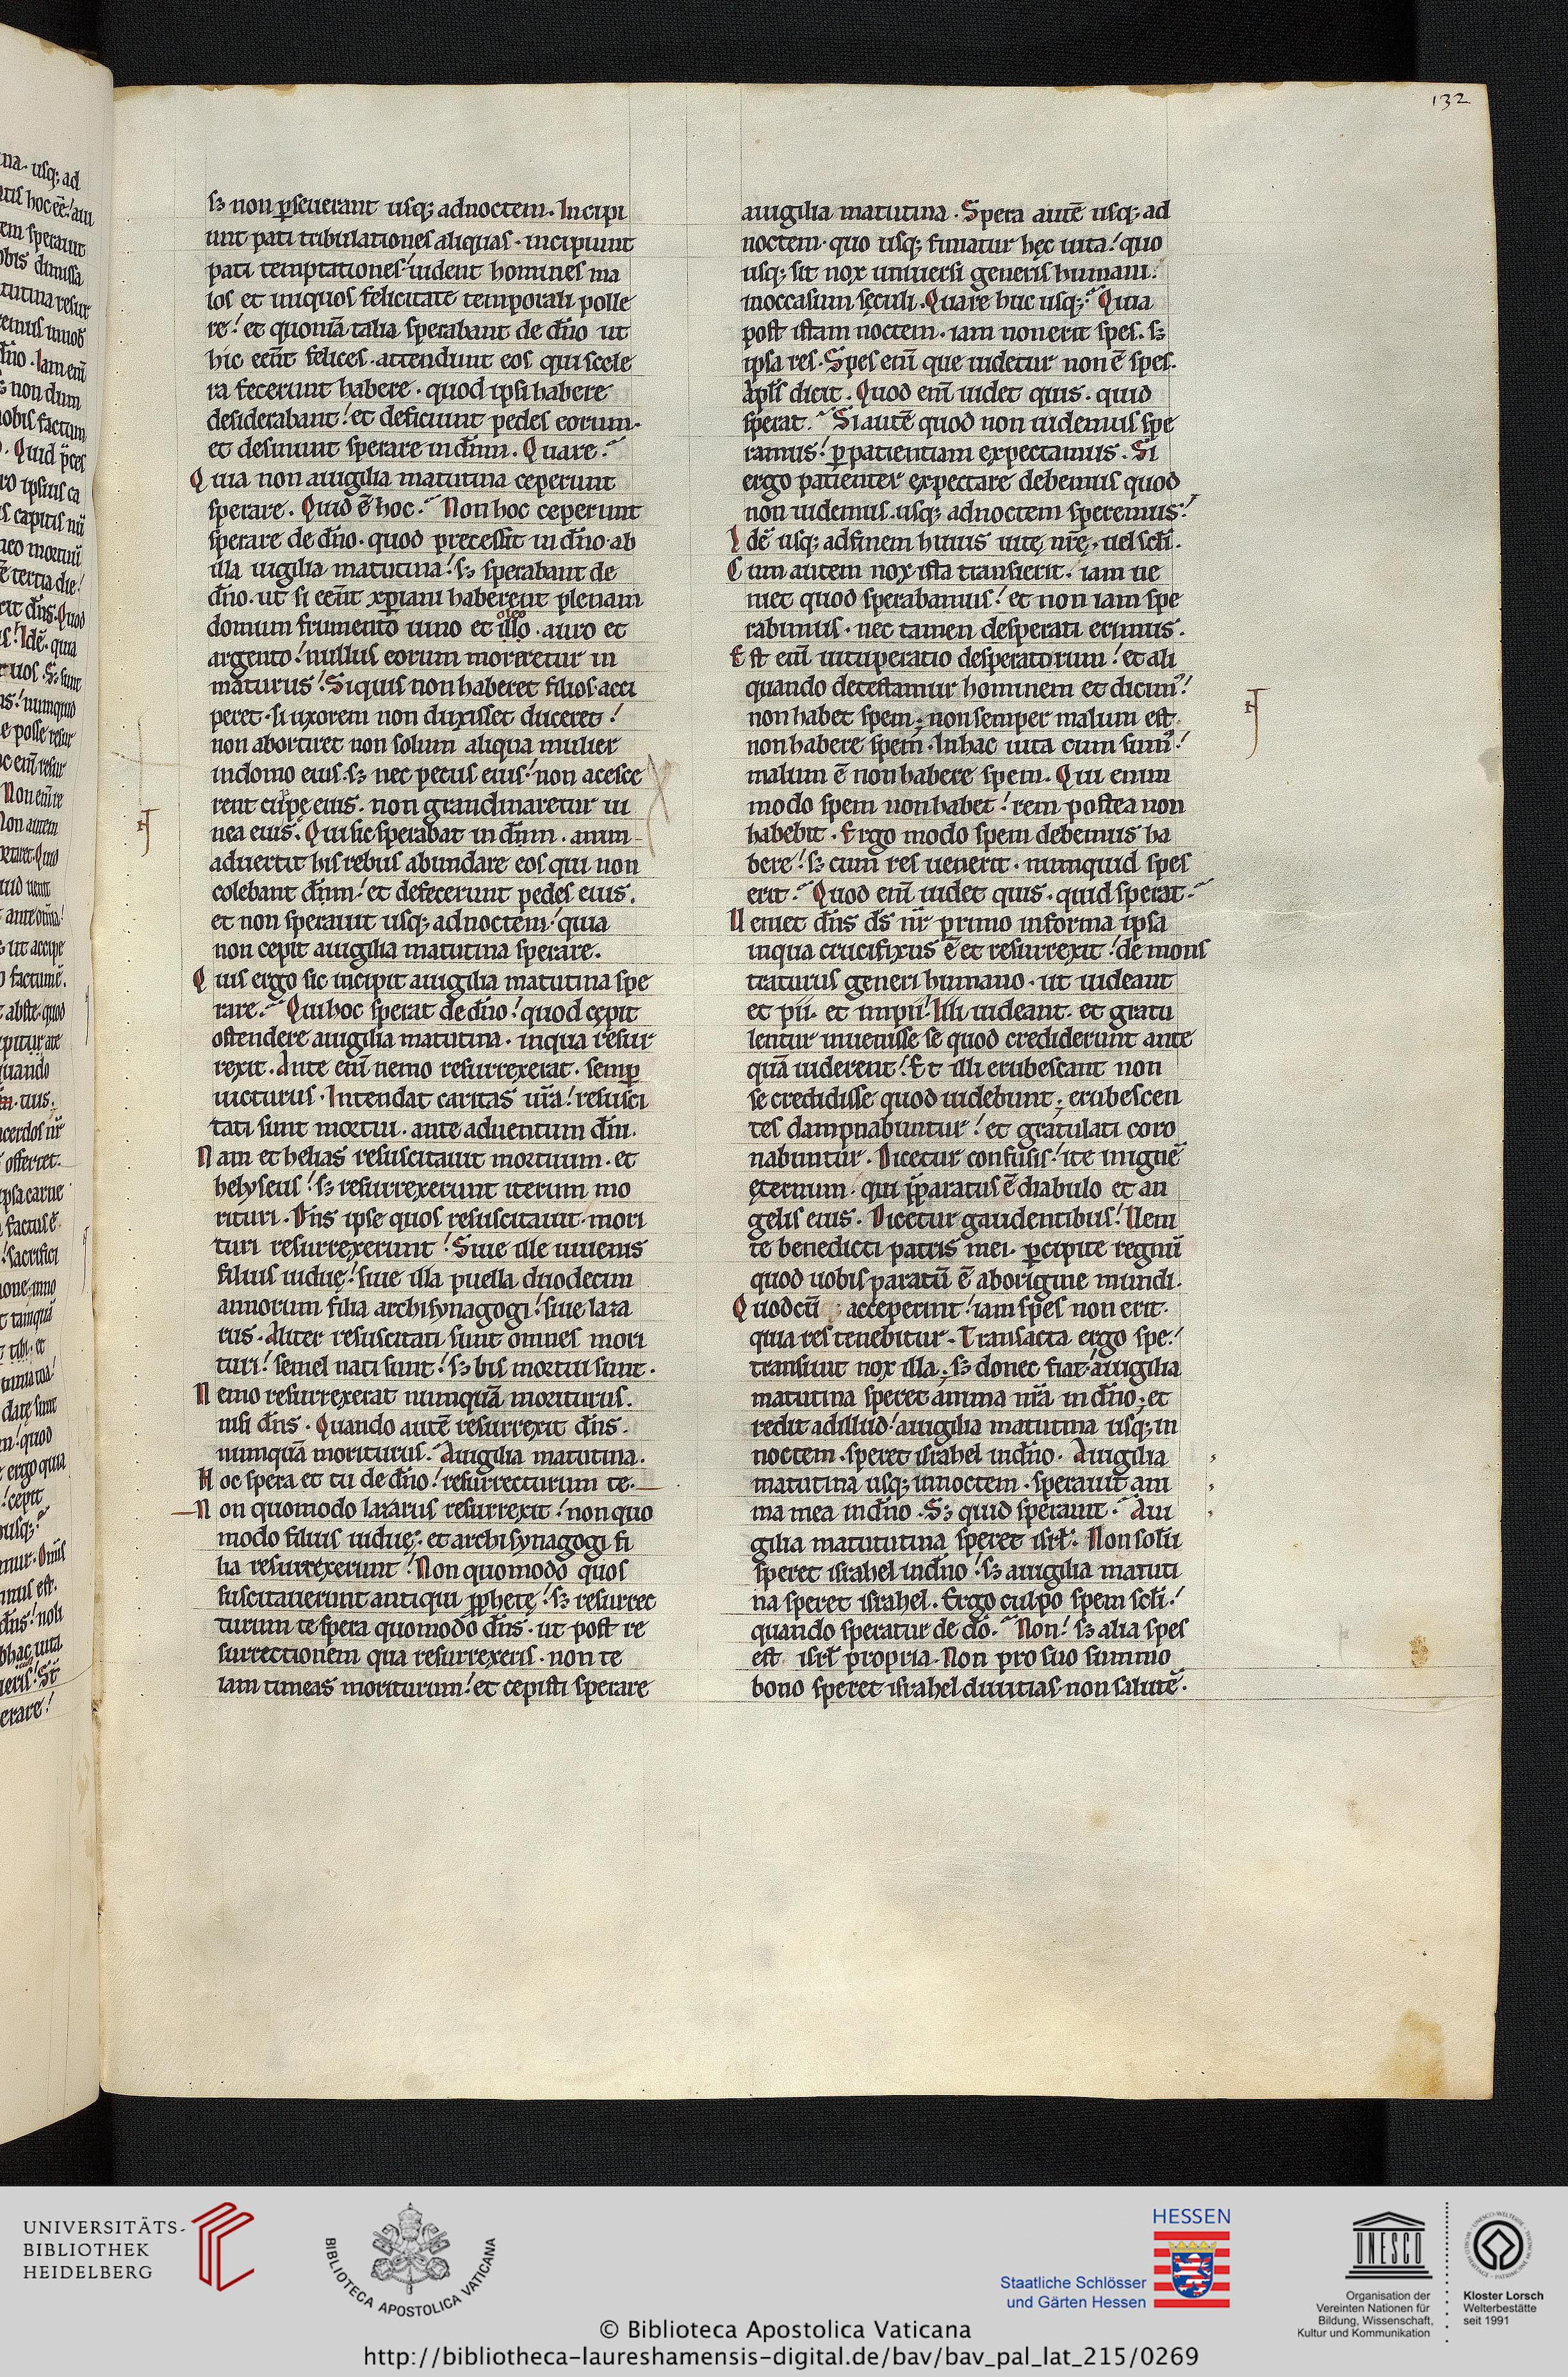 132
sꝫ non ꝑseuerant usqꝫ adnoctem. Incipi
unt pati tribulationes aliquas. incipiunt
pati temptationes. uident homines ma
los et iniquos felicitate temporali polle
re. et quoniā talia sperabant de dño ut
hic eēnt felices. attendunt eos qui scele
ra fecerunt habere. quod ipsi habere
desiderabant. et deficiunt pedes eorum.
et desinunt sperare in dñm. Quare?
Quia non auigilia matutina ceperunt
sperare. Quid ē hoc? Non hoc ceperunt
sperare de dño. quod precessit in dño. ab
illa uigilia matutina. sꝫ sperabant de
dño. ut si eēnt xp̄iani haberent plenam
domum frumento uino et illo oleo. auro et
argento. nullus eorum moreretur in
maturus. Siquis non haberet filios. acci
peret. si uxorem non duxisset duceret.
non abortiret non solum aliqua mulier
indomo eius. sꝫ nec pecus eius. non acesce
rent cupę eius. non grandinaretur ui
nea eius. Qui sic sperabat in dñm. anim-
aduertit his rebus abundare eos qui non
colebant dñm. et defecerunt pedes eius.
et non sperauit usqꝫ adnoctem. quia
non cepit auigilia matutina sperare.
Quis ergo sic incipit auigilia matutina spe
rare? Qui hoc sperat de dño. quod cępit
ostendere auigilia matutina. inqua resur
rexit. Ante enī nemo resurrexerat. semꝑ
uicturus. Intendat caritas ur̄a. resusci
tati sunt mortui. ante aduentum dñi.
Nam et helias resuscitauit mortuum. et
helyseus. sꝫ resurrexerunt iterum mo
rituri. Dñs ipse quos resuscitauit. mori
turi resurrexerunt. Siue ille iuuenis
filius uiduę. siue illa puella duodecim
annorum filia archisynagogi. siue laza
rus. Aliter resuscitati sunt omnes mori
turi. semel nati sunt. sꝫ bis mortui sunt.
Nemo resurrexerat numquā moriturus.
nisi dñs. Quando autē resurrexit dñs.
numquā moriturus? Auigilia matutina.
Hoc spera et tu de dño. resurrecturum te.
Non quomodo lazarus resurrexit. non quo
modo filius uiduę. et archisynagogi fi
lia resurrexerunt. Non quomodo quos
suscitauerunt antiqui ꝓphetę. sꝫ resurrec
turum te spera quomodo dñs. ut post re
surrectionem qua resurrexeris. non te
iam timeas moriturum. et cepisti sperare
auigilia matutina. Spera autē usqꝫ ad
noctem. quo usqꝫ finiatur hęc uita. quo
usqꝫ sit nox uniuersi generis humani.
inoccasum sęculi. Quare huc usqꝫ? Quia
post istam noctem. iam non erit spes. sꝫ
ipsa res. Spes enī que uidetur non ē spes.
Apl̄s dicit. Quod enī uidet quis. quid
sperat? Si autē quod non uidemus spe
ramus. ꝑ patientiam expectamus. Si
ergo patienter expectare debemus quod
non uidemus. usqꝫ adnoctem speremus.
Idē usqꝫ adfinem huius uitę nr̄ę. uel scl̄i.
Cum autem nox ista transierit. iam ue
niet quod sperabamus. et non iam spe
rabimus. nec tamen desperati erimus.
Est enī uituperatio desperatorum. et ali
quando detestamur hominem et dicim᷒.
non habet spem. non semper malum est
non habere spem. Inhac uita cum sum᷒.
malum ē non habere spem. Qui enim
modo spem non habet. rem postea non
habebit. Ergo modo spem debemus ha
bere. sꝫ cum res uenerit. numquid spes
erit? Quod enī uidet quis. quid sperat?
Ueniet dñs ds̄ nr̄ primo informa ipsa
inqua crucifixus ē et resurrexit. demons
traturus generi humano. ut uideant
et pii. et impii. Illi uideant. et gratu
lentur inuenisse se quod crediderunt ante
quā uiderent. Et illi erubescant non
se credidisse quod uidebunt. erubescen
tes dampnabuntur. et gratulati coro
nabuntur. Dicetur confusis. ite inignē
ęternum. qui p̄paratus ē diabulo et an
gelis eius. Dicetur gaudentibus. Ueni
te benedicti patris mei. ꝑcipite regnū
quod uobis paratū ē aborigine mundi.
Quodcū acceperint. iam spes non erit.
quia res tenebitur. Transacta ergo spe.
transiuit nox illa. sꝫ donec fiat. auigilia
matutina speret anima nr̄a in dño. et
redit adillud. auigilia matutina usqꝫ in
noctem. speret israhel indño. Auigilia
matutina usqꝫ innoctem. sperauit ani
ma mea indño. Sꝫ quid sperauit? Aui
gilia matututina speret isrl̄. Non solū
speret israhel indño. sꝫ auigilia matuti
na speret israhel. Ergo culpo spem scl̄i.
quando speratur de dō? Non. sꝫ alia spes
est isrl̄ propria. Non pro suo summo
bono speret israhel diuitias. non salutē.
UNIVERSITÄTS-
BIBLIOTHEK
HEIDELBERG
BIBLIOTECA APOSTOLICA VATICANA
HESSEN
Staatliche Schlösser
und Gärten Hessen
UNESCO
Organisation der
Vereinten Nationen für
Bildung, Wissenschaft,
Kultur und Kommunikation
Kloster Lorsch
Welterbestätte
seit 1991
© Biblioteca Apostolica Vaticana
http://bibliotheca-laureshamensis-digital.de/bav/bav_pal_lat_215/0269